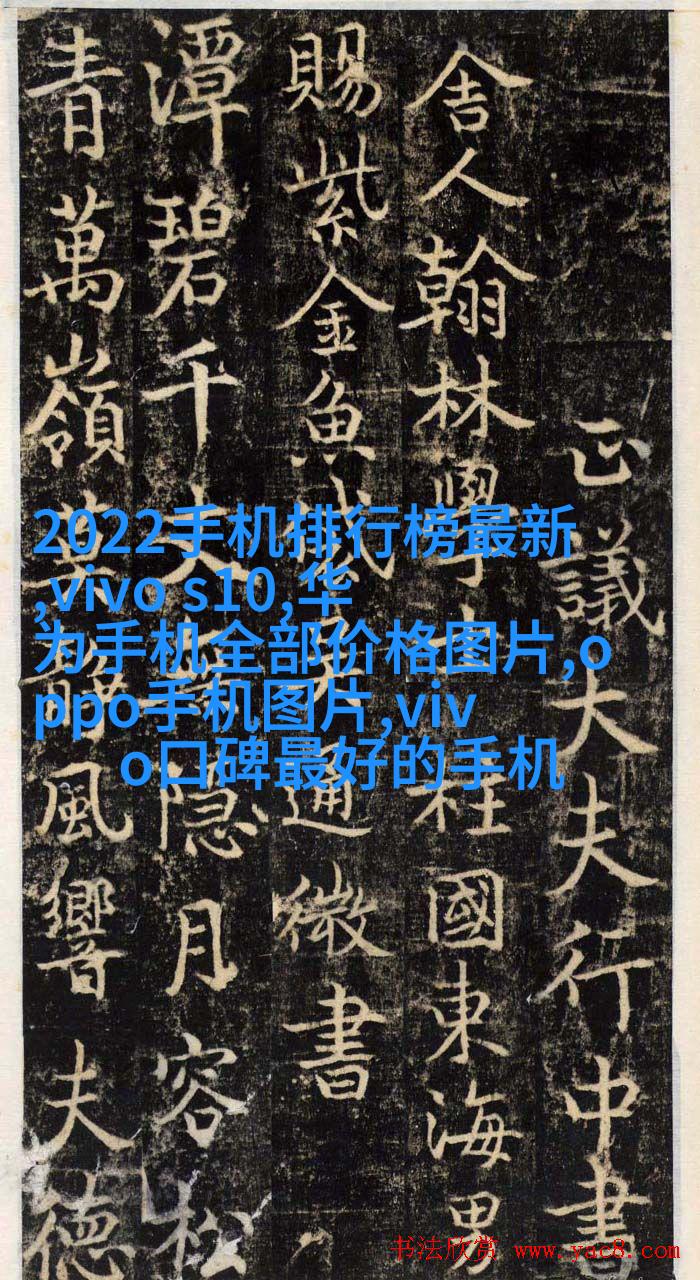 正議大夫行中書
舍人翰林學柱國東海男
賜紫金魚通微書
潭碧千丈隐月容松
青萬嶺葉靜風響夫德
2022手机排行榜最新
,vivo s10,华
为手机全部价格图片,o
ppo手机图片,viv
o口碑最好的手机
书法欣赏 www.yac8.com